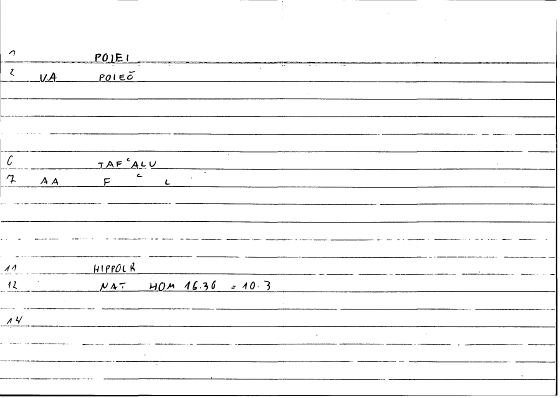 1 POIEI
2 VA POIEŌ
6 TAFʿALU
7 AA F ʿ L
11 HIPPOLR
12 NAT HOM 16.36 = 10.3
14